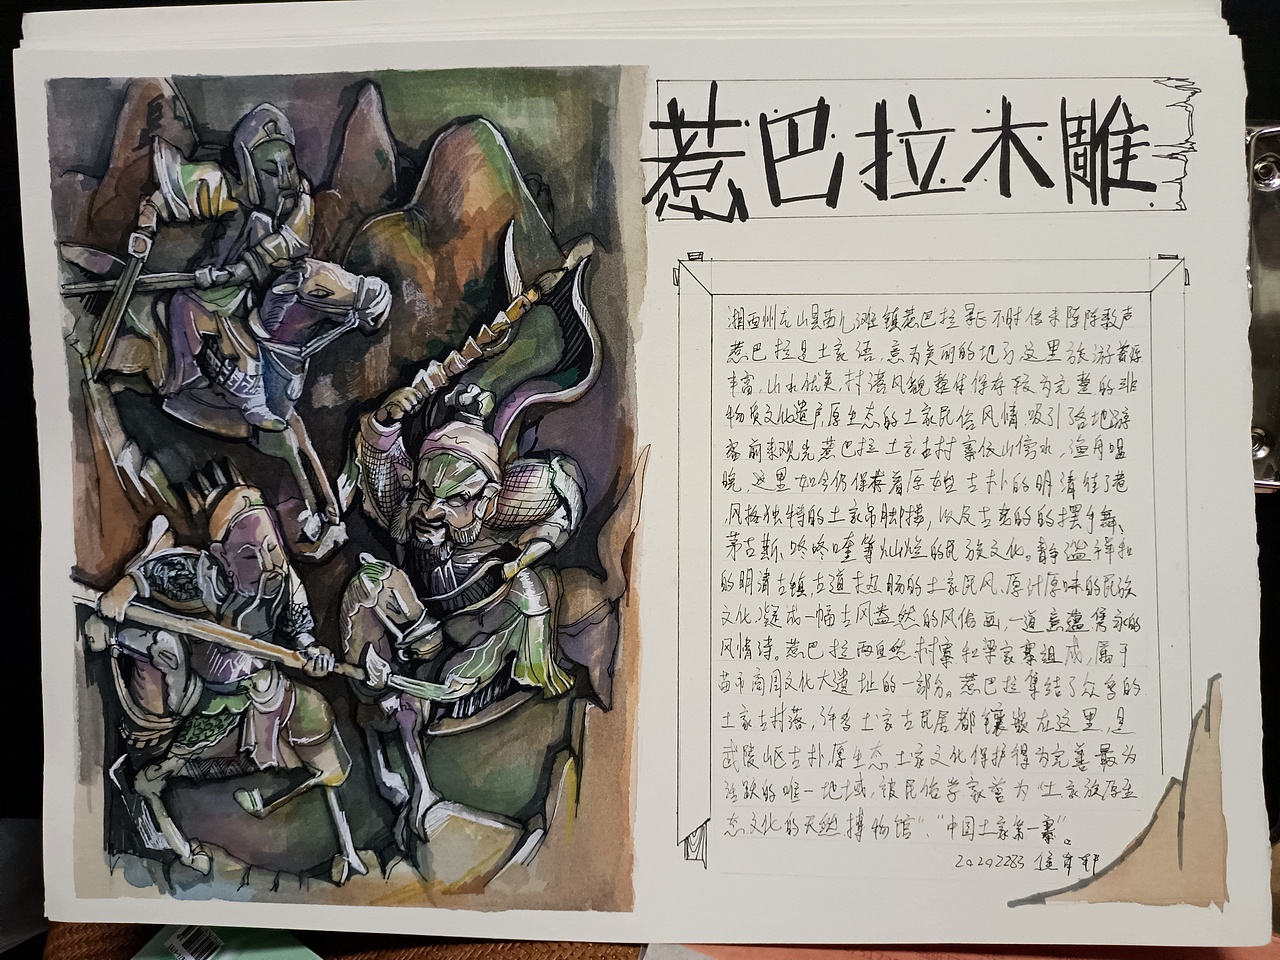 惹巴拉木雕
湘西州龙山县苗儿滩镇惹巴拉景区不时传来阵阵歌声
惹巴拉是土家语,意为美丽的地方这里旅游资源
丰富,山水优美,村落风貌整体保存较为完整的非
物质文化遗产原生态的土家民俗风情,吸引了各地游
客前来观光惹巴拉土家古村寨依山傍水,渔舟唱
晚,这里如今仍保存着原始古朴的明清街巷
风格独特的土家吊脚楼,以及古老的的摆手舞、
茅古斯、咚咚喹等灿烂的民族文化。静谧祥和
的明清古镇古道古热肠的土家民风,原汁原味的民族
文化,凝成一幅土风盎然的风俗画,一道意蕴隽永的
风情诗。惹巴拉两自然村寨和梁家寨组成,属于
苗市商周文化大遗址的一部分。惹巴拉集结了众多的
土家古村落,许多土家古民居都镶嵌在这里,是
武陵山区古朴原生态土家文化保护得为完善最为
活跃的唯一地域,被民俗学家誉为"土家族原生
态文化的天然博物馆"、"中国土家第一寨"。
20202283